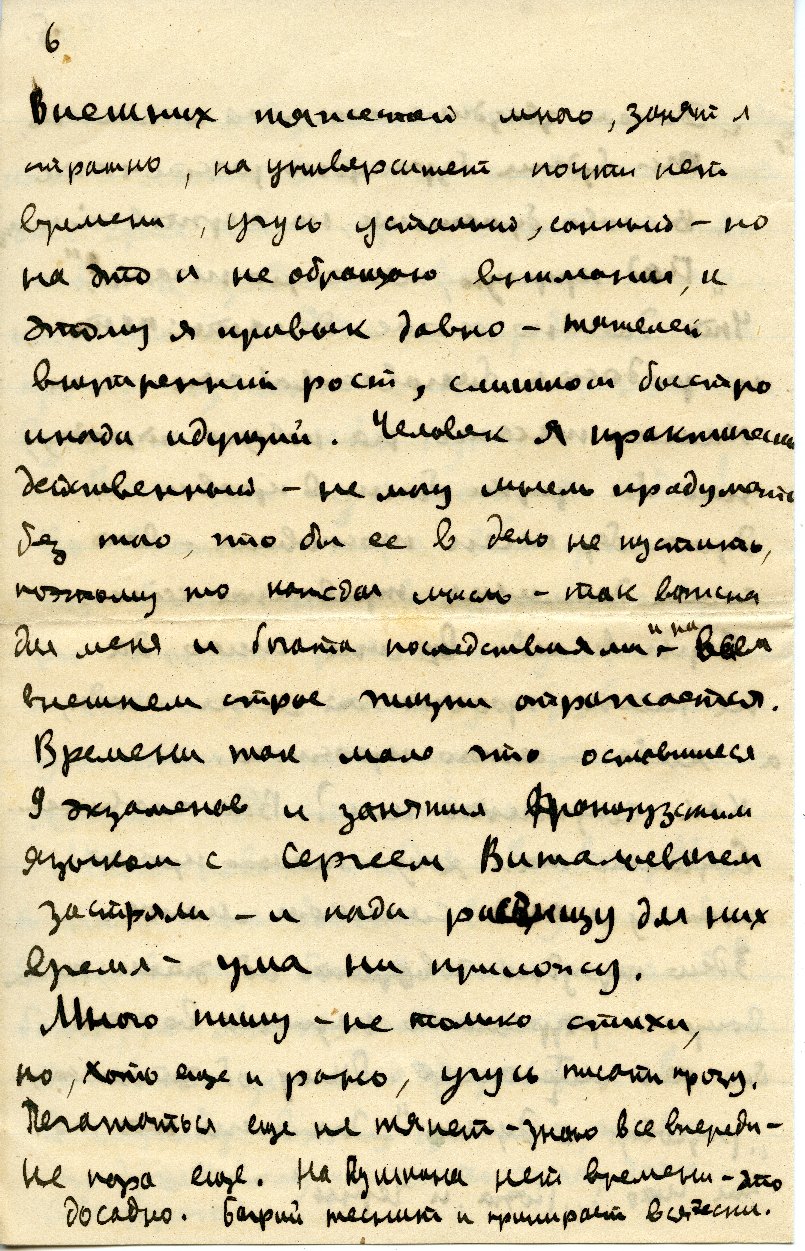 6
Внешних тяжестей много, занят я
страшно, на университет почти нет
времени, учусь усталый, сонный – но
на это и не обращаю внимания, к
этому я привык давно – тяжелей
внутренний рост, слишком быстро
иногда идущий. Человек я практически
действенный – не могу мысль продумать
без того, что бы ее в дело не пустить,
поэтому то каждая мысль – так важна
для меня и богата последствиями – и на всем
внешнем строе жизни отражается.
Времени так мало что оставшиеся
9 экзаменов и занятия французским
языком с Сергеем Витальевичем
застряли – и когда разыщу для них
время – ума ни приложу.
Много пишу – не только стихи,
но, хоть еще и рано, учусь писать прозу.
Печататься еще не тянет – знаю все впереди –
не пора еще. На Пушкина нет времени – это
досадно. теснит и напирает всячески.